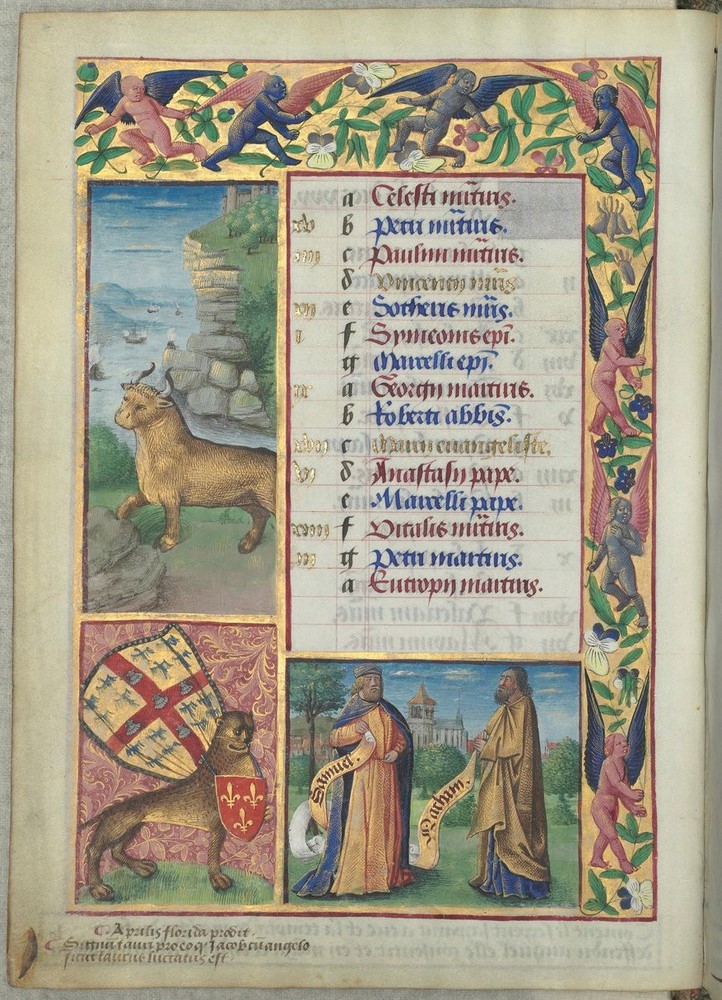 a Celesti mr̄tiris.
xv b Petri mr̄tiris.
iiij c Paulini mr̄tiris.
d Vincentij mr̄is.
xij e Sotheris mr̄is.
i f Symeonis ep̄i.
g Marcelli ep̄i.
ix a Georgij martiris.
b Roberti abb̄is.
xvij c Marci euangeliste.
vj d Anastasij pape.
e Marcelli pape.
xiiij f Vitalis mr̄tiris.
iij g Petri martiris.
a Eutropij martiris.
Samuel.
Nathan.
Aprilis florida prodit
Signū tauri pro eo qͥ Jacob cū angelo
sicut taurus luctatus est